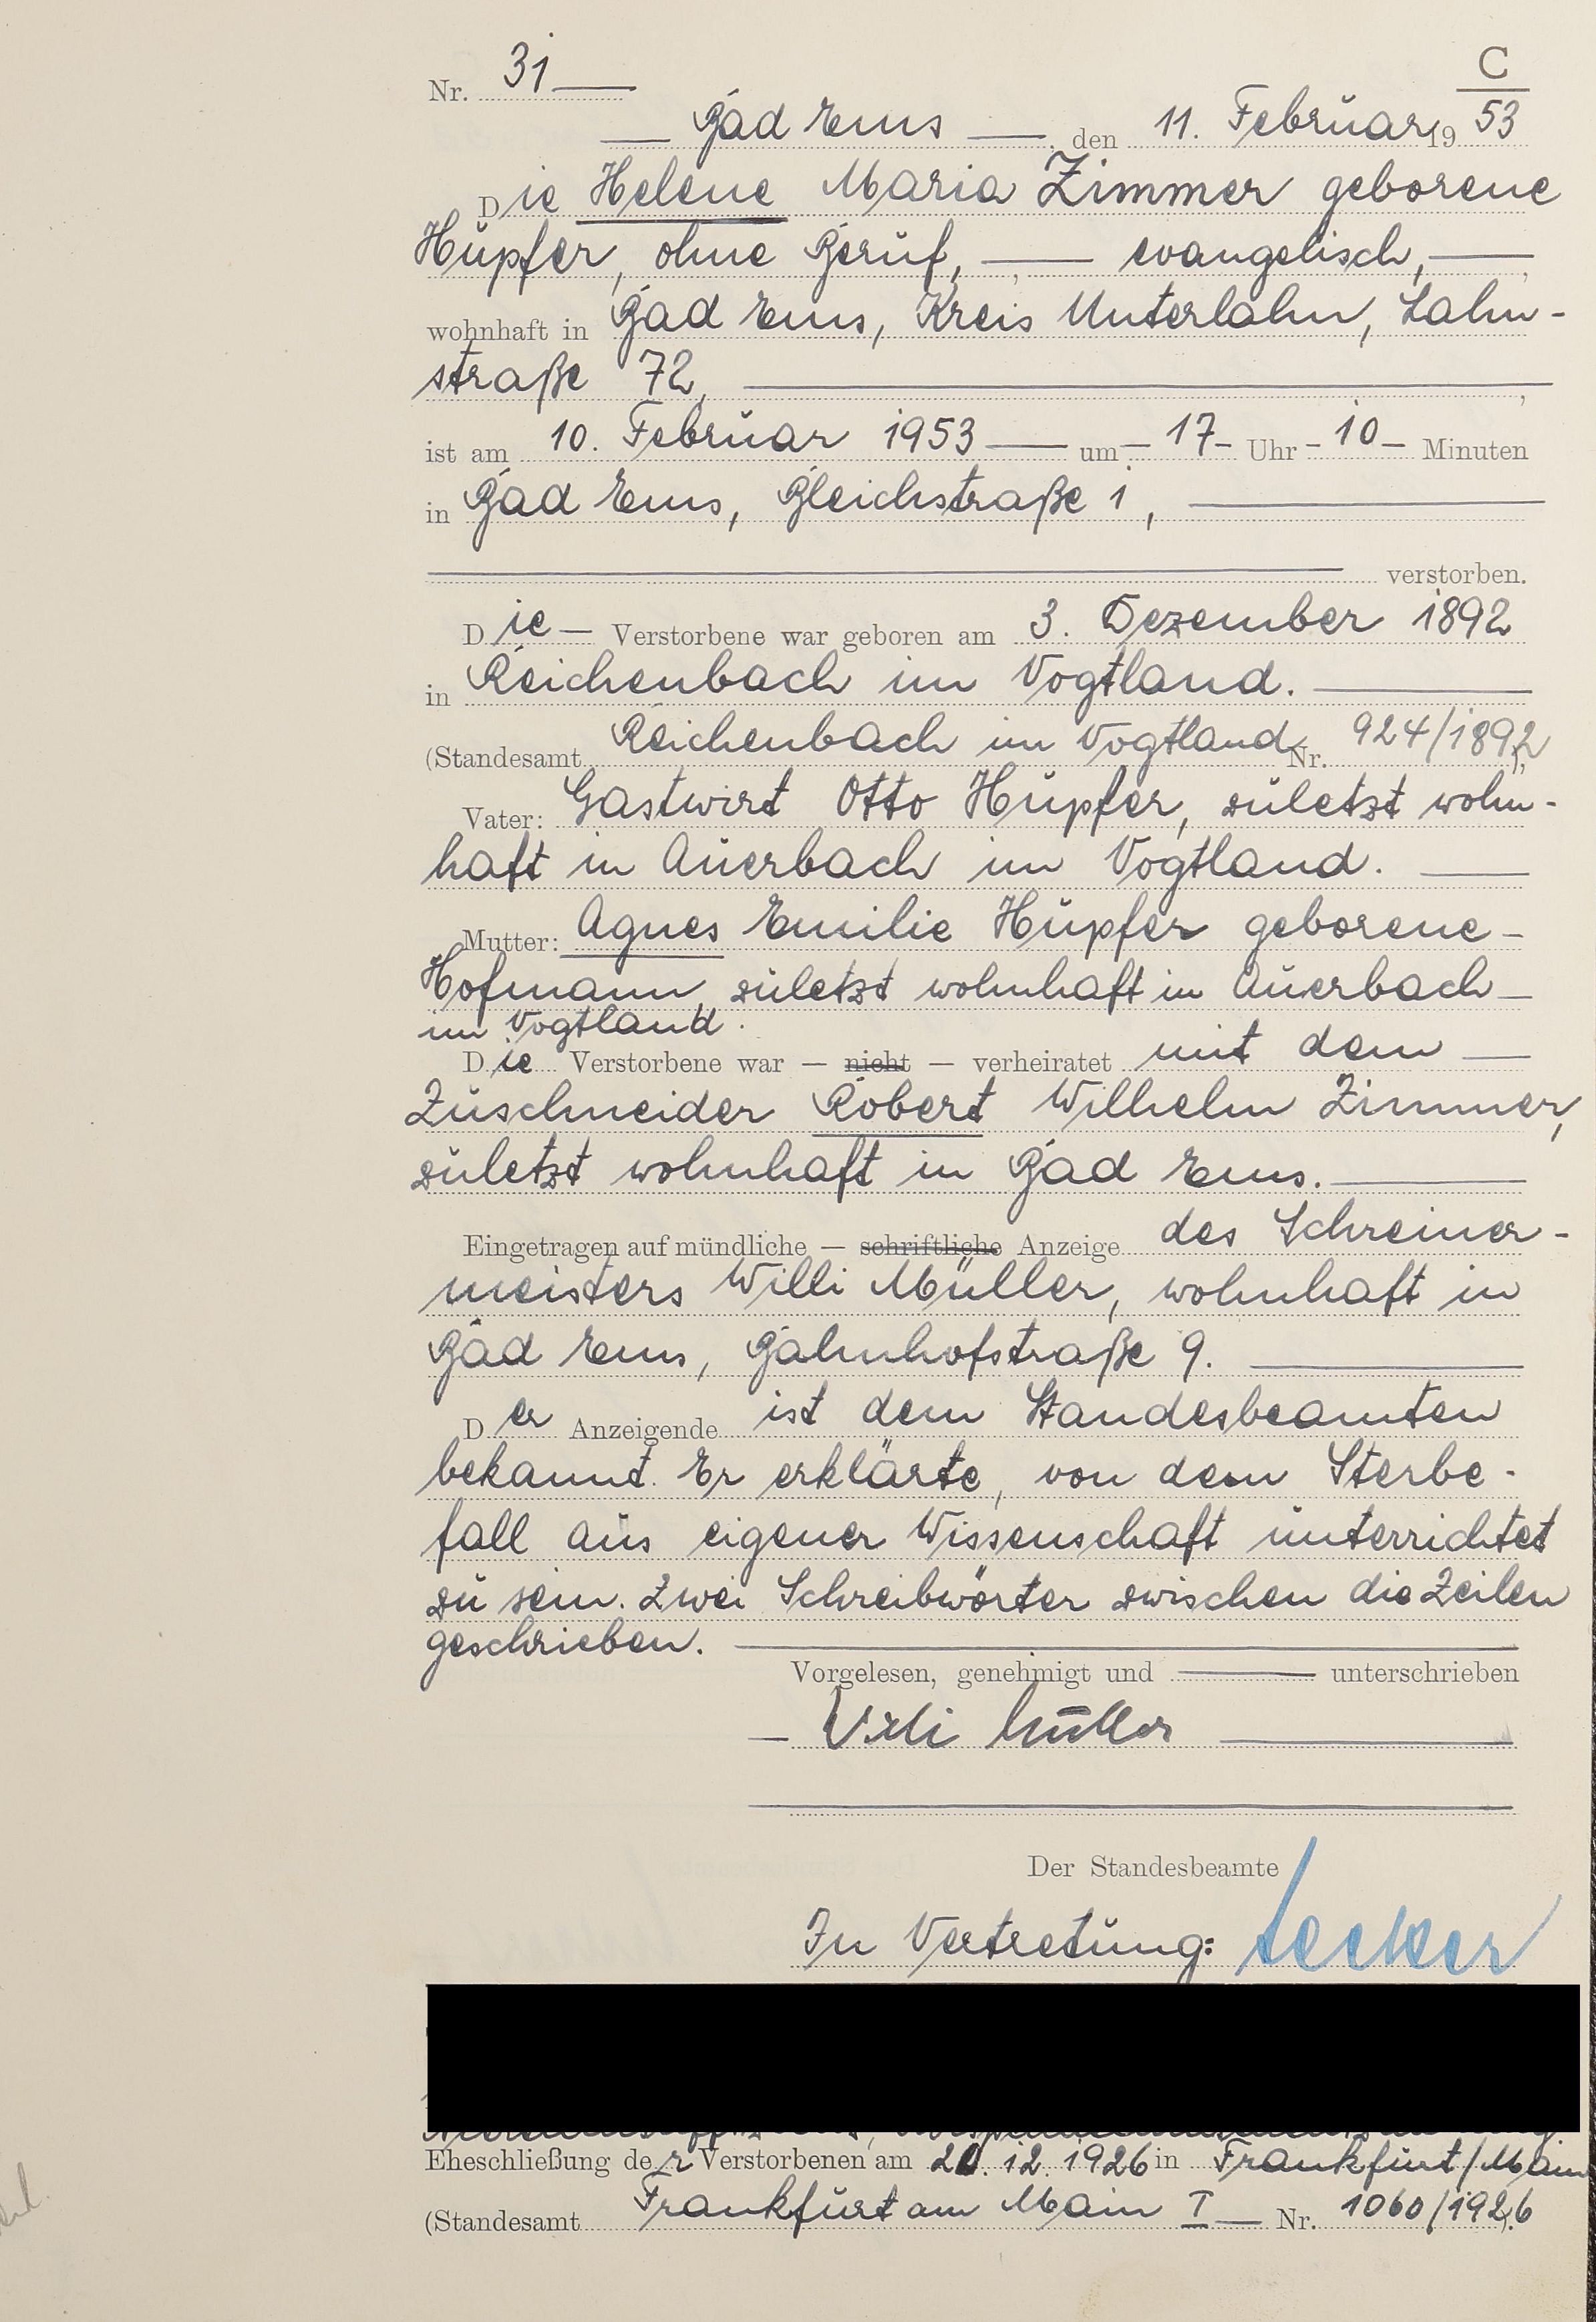 C
Nr. 31
Bad Ems, den 11. Februar 1953
Die Helene Maria Zimmer geborene
Hupfer, ohne Beruf, evangelisch,
wohnhaft in Bad Ems, Kreis Unterlahn, Lahn-
straße 72,
ist am 10. Februar 1953 um - 17 - Uhr - 10 - Minuten
in Bad Ems, Bleichstraße 1,
verstorben.
Die Verstorbene war geboren am 3. Dezember 1892
in Reichenbach im Vogtland.
(Standesamt Reichenbach im Vogtland Nr. 924/1892),
Vater: Gastwirt Otto Hupfer, zuletzt wohn-
haft in Auerbach im Vogtland.
Mutter: Agnes Emilie Hupfer geborene
Hofmann, zuletzt wohnhaft in Auerbach
im Vogtland.
Die Verstorbene war — nicht — verheiratet mit dem
Zuschneider Robert Wilhelm Zimmer,
zuletzt wohnhaft in Bad Ems.
Eingetragen auf mündliche — schriftliche Anzeige des Schreiner-
meisters Willi Müller, wohnhaft in
Bad Ems, Bahnhofstraße 9.
Der Anzeigende ist dem Standesbeamten
bekannt. Er erklärte, von dem Sterbe-
fall aus eigener Wissenschaft unterrichtet
zu sein. Zwei Schreibwörter zwischen die Zeilen
geschrieben.
Vorgelesen, genehmigt und unterschrieben
Willi Müller
Der Standesbeamte
In Vertretung:
Eheschließung der Verstorbenen am 20.12.1926 in Frankfurt/Main
(Standesamt Frankfurt am Main I Nr. 1060/1926).